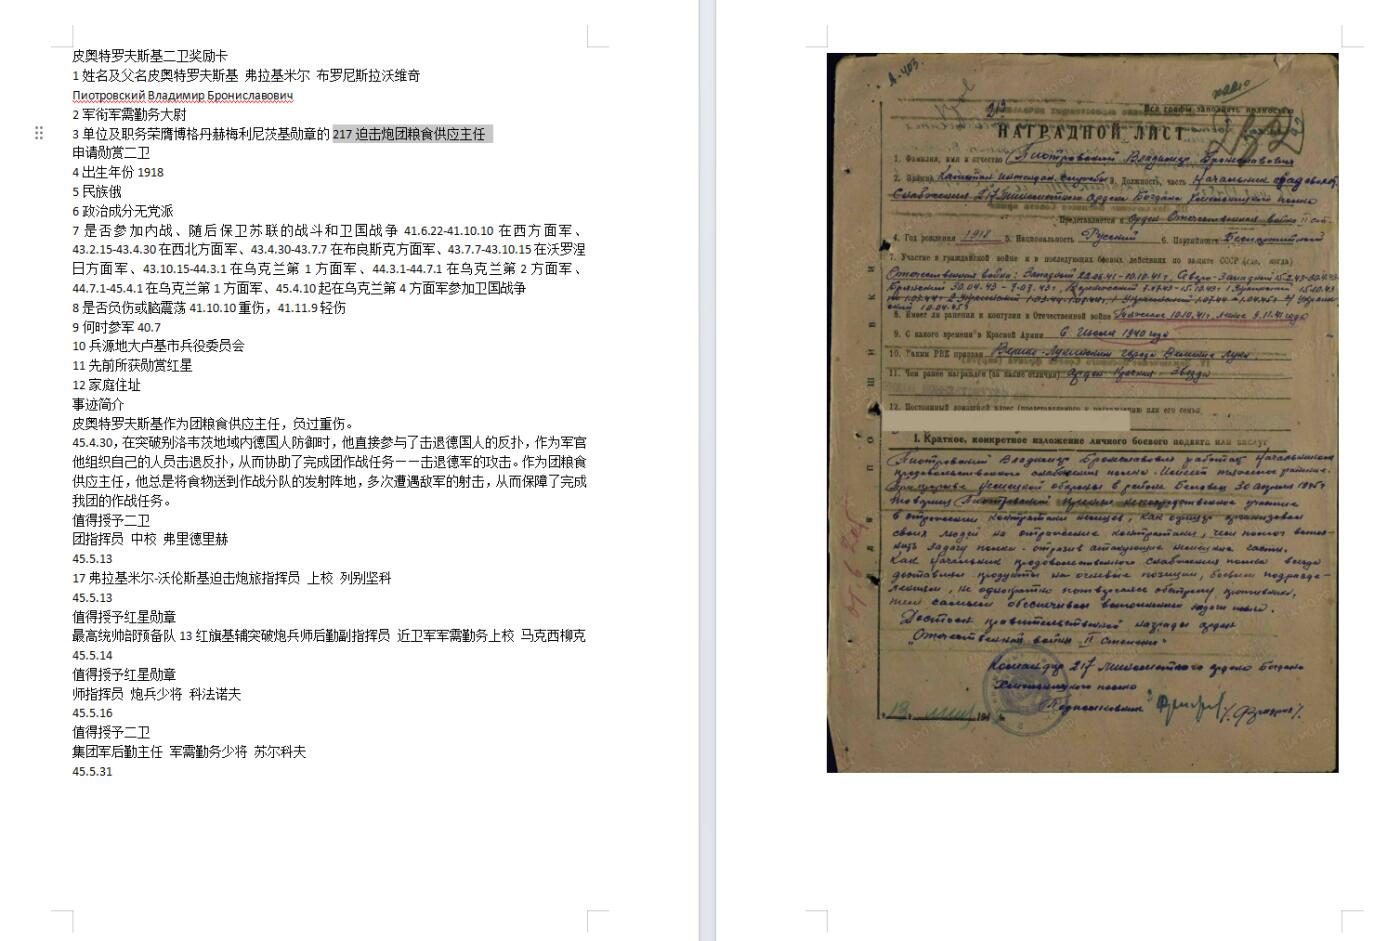 皮奥特罗夫斯基二卫奖励卡
1 姓名及父名皮奥特罗夫斯基 弗拉基米尔 布罗尼斯拉沃维奇
Пиотровский Владимир Брониславович
2 军衔军需勤务大尉
3 单位及职务荣膺博格丹赫梅利尼茨基勋章的 217 迫击炮团粮食供应主任
申请勋赏二卫
4 出生年份 1918
5 民族俄
6 政治成分无党派
7 是否参加内战、随后保卫苏联的战斗和卫国战争 41.6.22-41.10.10 在西方面军、
43.2.15-43.4.30 在西北方面军、43.4.30-43.7.7 在布良斯克方面军、43.7.7-43.10.15 在沃罗涅
日方面军、43.10.15-44.3.1 在乌克兰第 1 方面军、44.3.1-44.7.1 在乌克兰第 2 方面军、
44.7.1-45.4.1 在乌克兰第 1 方面军、45.4.10 起在乌克兰第 4 方面军参加卫国战争
8 是否负伤或脑震荡 41.10.10 重伤，41.11.9 轻伤
9 何时参军 40.7
10 兵源地大卢基市兵役委员会
11 先前所获勋赏红星
12 家庭住址
事迹简介
皮奥特罗夫斯基作为团粮食供应主任，负过重伤。
45.4.30，在突破别洛韦茨地域内德国人防御时，他直接参与了击退德国人的反扑，作为军官
他组织自己的人员击退反扑，从而协助了完成团作战任务——击退德军的攻击。作为团粮食
供应主任，他总是将食物送到作战分队的发射阵地，多次遭遇敌军的射击，从而保障了完成
我团的作战任务。
值得授予二卫
团指挥员 中校 弗里德里赫
45.5.13
17 弗拉基米尔-沃伦斯基迫击炮旅指挥员 上校 列别坚科
45.5.13
值得授予红星勋章
最高统帅部预备队 13 红旗基辅突破炮兵师后勤副指挥员 近卫军军需勤务上校 马克西柳克
45.5.14
值得授予红星勋章
师指挥员 炮兵少将 科法诺夫
45.5.16
值得授予二卫
集团军后勤主任 军需勤务少将 苏尔科夫
45.5.31
А-403
213
Все графы заполнять полностью
НАГРАДНОЙ ЛИСТ
1. Фамилия, имя и отчество Пиотровский Владимир Брониславович
2. Звание Капитан интендан. службы 3. Должность, часть Начальник продовол.
Снабжения 217 минометного ордена Богдана Хмельницкого полка
Представляется к Орден Отечественная война II ст.
4. Год рождения 1918 5. Национальность Русский 6. Партийность Беспартийный
7. Участие в гражданской войне и в последующих боевых действиях по защите СССР (где, когда)
Отечественная война: Западный 22.06.41-10.10.41 г, Северо-Западный 15.2.43-30.4.43
Брянский 30.04.43 - 7.07.43г, Воронежский 7.07.43-15.10.43
8. Имеет ли ранения и контузии в Отечественной войне Тяжелое 10.10.41г, легкое 9.11.41 года
9. С какого времени в Красной Армии С Июля 1940 года
10. Каким РВК призван Велико-Лукским города Великие Луки
11. Чем ранее награжден (за какие отличия) Орден Красная Звезда
12. Постоянный домашний адрес (представляемого к награждению или его семьи
I. Краткое, конкретное изложение личного боевого подвига или заслуг
Пиотровский Владимир Брониславович работая Начальником
продовольственного снабжения полка. Имеет тяжелое ранение.
немецкой обороны в районе 30 апреля 1945г
товарищ Пиотровский принял непосредственное участие
в отражении контратаки немцев, как офицер организовал
своих людей на отражение контратаки, чем помог выпол-
нить задачу полка - отразив атакующие немецкие части.
Как Начальник продовольственного снабжения полка всегда
доставлял продукты на огневые позиции, боевым подразде-
лениям, не однократно подвергался обстрелу противника,
тем самым обеспечивал выполнение задачи полка.
Достоин правительственной награды орден
"Отечественной войны II степени"
Командир 217 минометного ордена Богдана
Хмельницкого полка
Подполковник /Фридрих/
13 мая 194